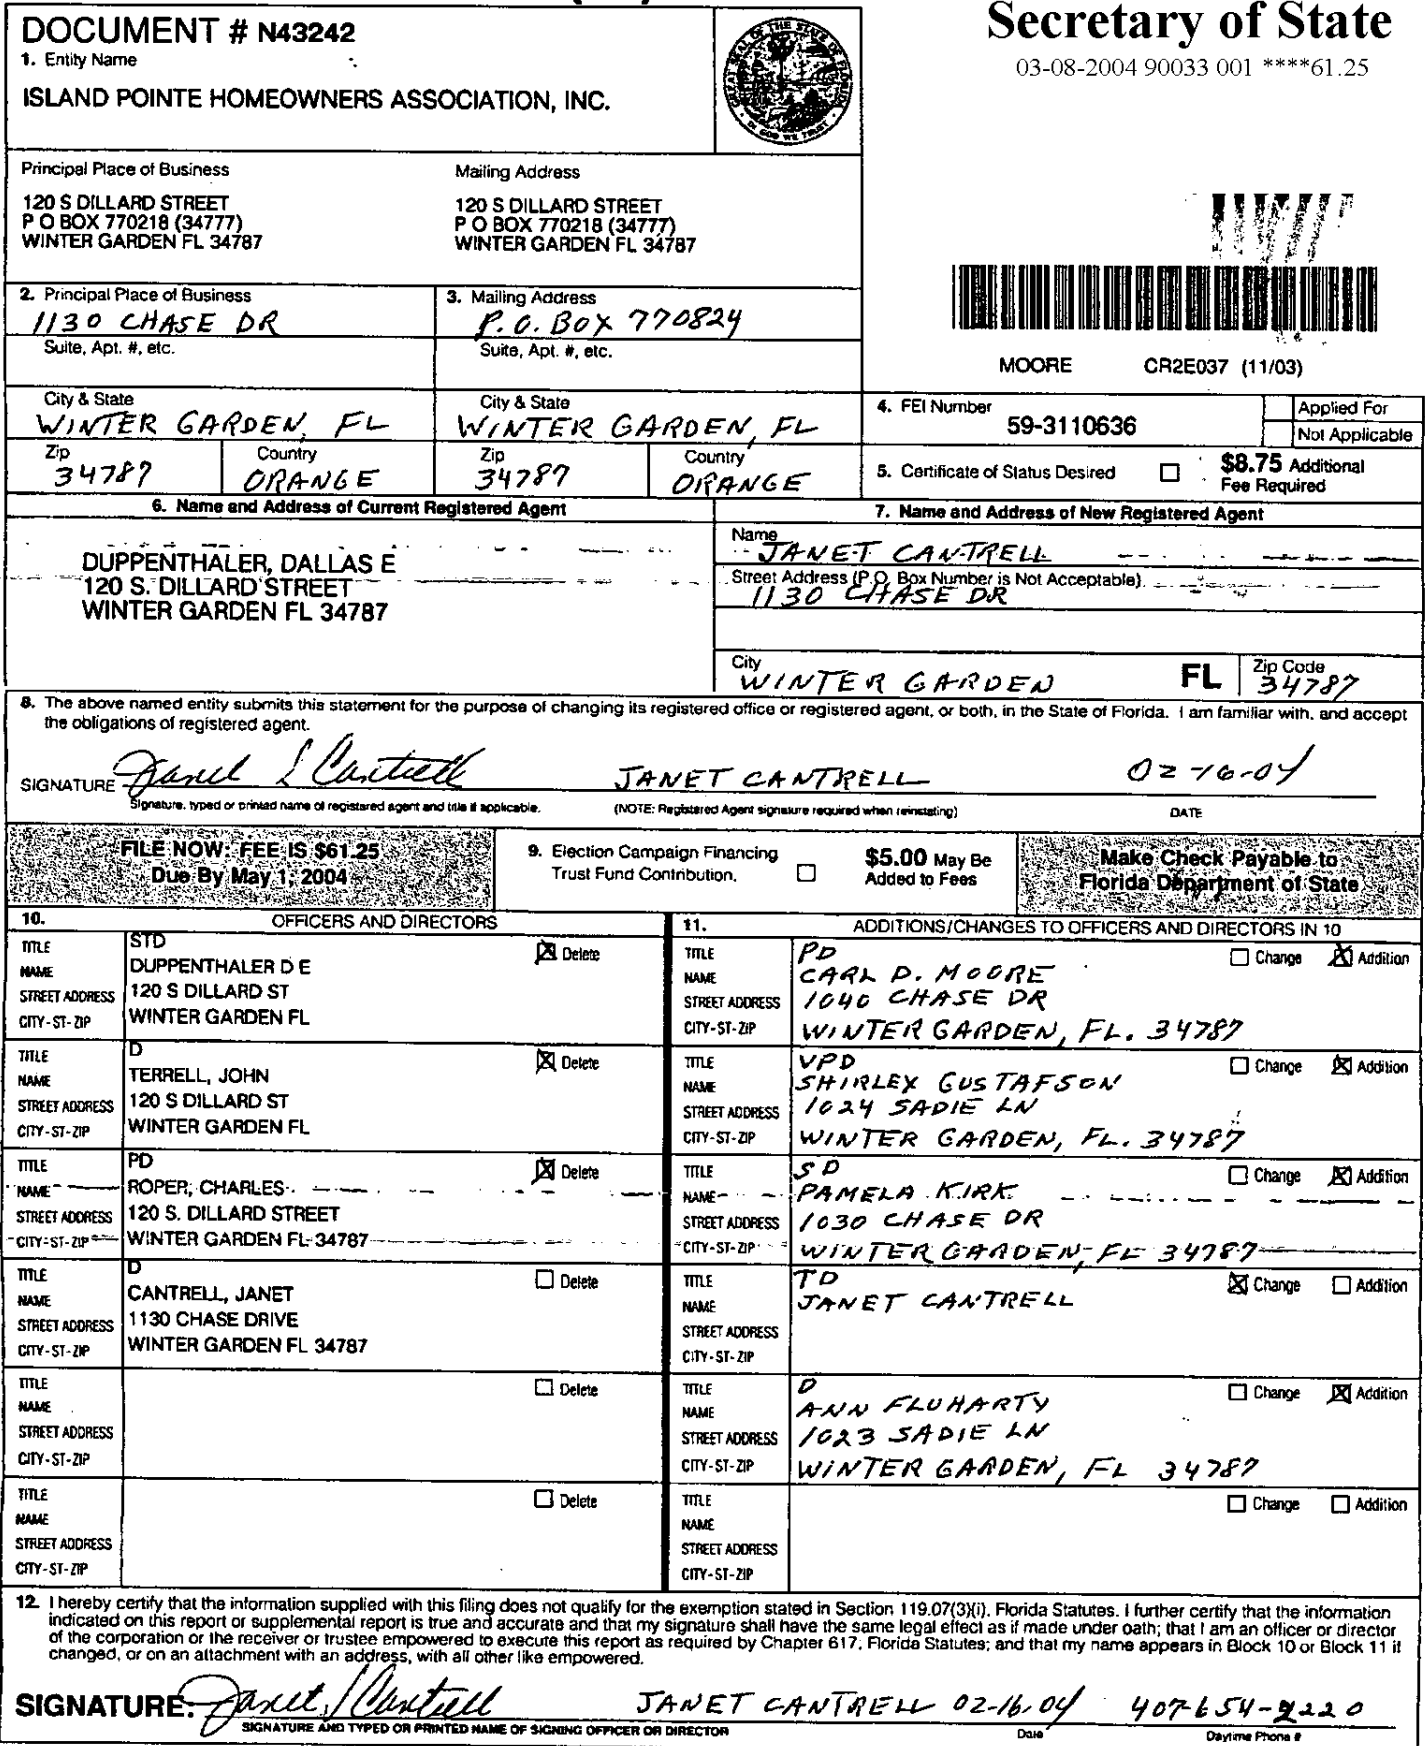 Secretary of State
03-08-2004 90033 001 ****61.25
DOCUMENT # N43242
1. Entity Name
ISLAND POINTE HOMEOWNERS ASSOCIATION, INC.
Principal Place of Business
120 S DILLARD STREET
P O BOX 770218 (34777)
WINTER GARDEN FL 34787
Mailing Address
120 S DILLARD STREET
P O BOX 770218 (34777)
WINTER GARDEN FL 34787
MOORE CR2E037 (11/03)
2. Principal Place of Business
1130 CHASE DR
Suite, Apt. #, etc.
City & State
WINTER GARDEN, FL
Zip
34787
Country
ORANGE
3. Mailing Address
P.O. BOX 770824
Suite, Apt. #, etc.
City & State
WINTER GARDEN, FL
Zip
34787
Country
ORANGE
4. FEI Number
59-3110636
Applied For
Not Applicable
5. Certificate of Status Desired
$8.75 Additional
Fee Required
6. Name and Address of Current Registered Agent
DUPPENTHALER, DALLAS E
120 S. DILLARD STREET
WINTER GARDEN FL 34787
7. Name and Address of New Registered Agent
Name
JANET CANTRELL
Street Address (P.O. Box Number is Not Acceptable)
1130 CHASE DR
City
WINTER GARDEN
FL
Zip Code
34787
8. The above named entity submits this statement for the purpose of changing its registered office or registered agent, or both, in the State of Florida. I am familiar with, and accept
the obligations of registered agent.
SIGNATURE Janet L Cantrell JANET CANTRELL 02-16-04
Signature, typed or printed name of registered agent and title if applicable. (NOTE: Registered Agent signature required when reinstating) DATE
FILE NOW: FEE IS $61.25
Due By May 1, 2004
9. Election Campaign Financing
Trust Fund Contribution.
$5.00 May Be
Added to Fees
Make Check Payable to
Florida Department of State
10. OFFICERS AND DIRECTORS
TITLE STD Delete
NAME DUPPENTHALER D E
STREET ADDRESS 120 S DILLARD ST
CITY-ST-ZIP WINTER GARDEN FL
TITLE D Delete
NAME TERRELL, JOHN
STREET ADDRESS 120 S DILLARD ST
CITY-ST-ZIP WINTER GARDEN FL
TITLE PD Delete
NAME ROPER, CHARLES
STREET ADDRESS 120 S. DILLARD STREET
CITY-ST-ZIP WINTER GARDEN FL 34787
TITLE D Delete
NAME CANTRELL, JANET
STREET ADDRESS 1130 CHASE DRIVE
CITY-ST-ZIP WINTER GARDEN FL 34787
TITLE Delete
NAME
STREET ADDRESS
CITY-ST-ZIP
TITLE Delete
NAME
STREET ADDRESS
CITY-ST-ZIP
11. ADDITIONS/CHANGES TO OFFICERS AND DIRECTORS IN 10
TITLE PD Change Addition
NAME CARL D. MOORE
STREET ADDRESS 1040 CHASE DR
CITY-ST-ZIP WINTER GARDEN, FL. 34787
TITLE VPD Change Addition
NAME SHIRLEY GUSTAFSON
STREET ADDRESS 1024 SADIE LN
CITY-ST-ZIP WINTER GARDEN, FL. 34787
TITLE SD Change Addition
NAME PAMELA KIRK
STREET ADDRESS 1030 CHASE DR
CITY-ST-ZIP WINTER GARDEN, FL 34787
TITLE TD Change Addition
NAME JANET CANTRELL
STREET ADDRESS
CITY-ST-ZIP
TITLE D Change Addition
NAME ANN FLUHARTY
STREET ADDRESS 1023 SADIE LN
CITY-ST-ZIP WINTER GARDEN, FL 34787
TITLE Change Addition
NAME
STREET ADDRESS
CITY-ST-ZIP
12. I hereby certify that the information supplied with this filing does not qualify for the exemption stated in Section 119.07(3)(i), Florida Statutes. I further certify that the information
indicated on this report or supplemental report is true and accurate and that my signature shall have the same legal effect as if made under oath; that I am an officer or director
of the corporation or the receiver or trustee empowered to execute this report as required by Chapter 617, Florida Statutes; and that my name appears in Block 10 or Block 11 if
changed, or on an attachment with an address, with all other like empowered.
SIGNATURE: Janet L Cantrell JANET CANTRELL 02-16-04 407-654-2220
SIGNATURE AND TYPED OR PRINTED NAME OF SIGNING OFFICER OR DIRECTOR Date Daytime Phone #